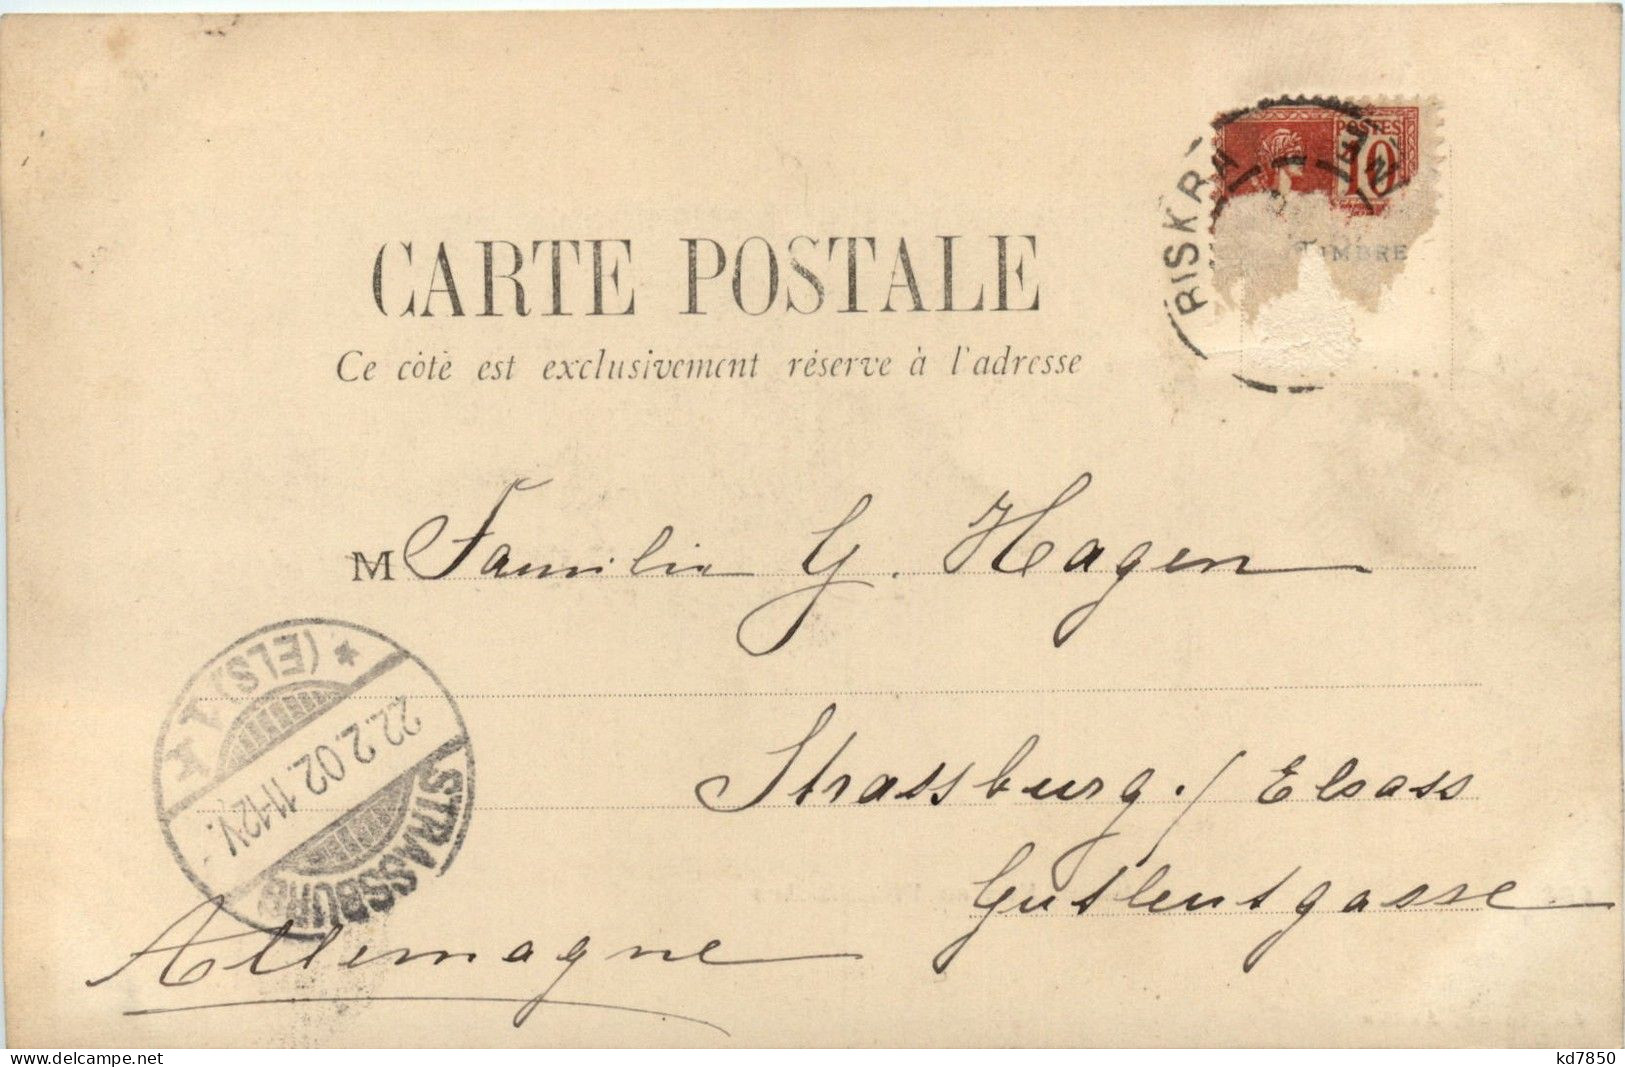 POSTES
10
BISKRA
TIMBRE
CARTE POSTALE
Ce côté est exclusivement réservé à l'adresse
M Familie G. Hagen
Strassburg./Elsass
Gutleutgasse
Allemagne
STRASSBURG
22.2.02.11-12V.
* (ELS)
delcampe.net
kd7850